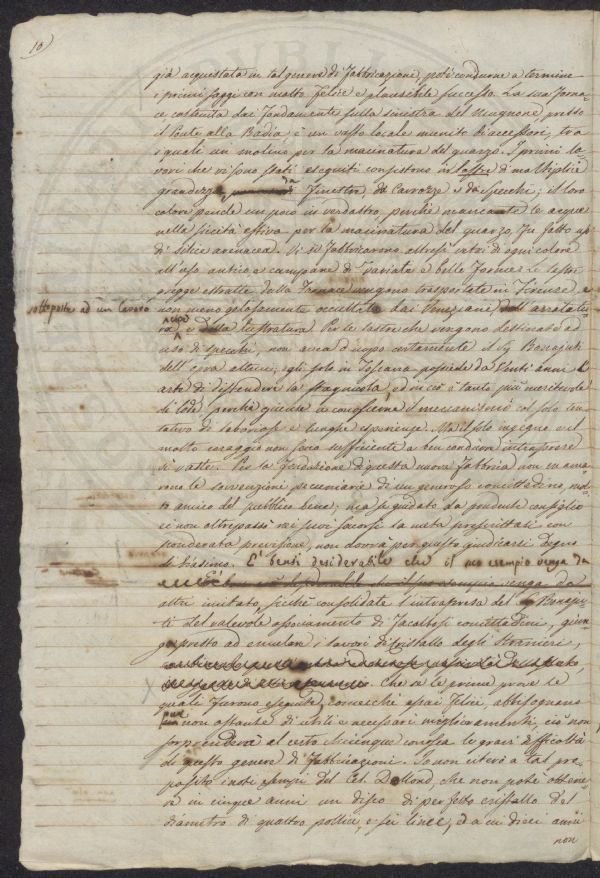 10)
già acquistata in tal genere di fabbricazione, potè condurne a termine
i primi saggi con molto felice e plausibile successo. La sua forna-
ce, costruita dai fondamenti sulla sinistra del Mugnone presso
il Ponte alla Badia, è un vasto locale munito di accessorj, tra
i quali un molino per la macinatura del quarzo. I primi la-
vori che vi sono stati eseguiti consistono in lastre di moltiplice
grandezza da finestre, da Carrozze e da Specchi; il loro
colore pende un poco in verdastro, perchè mancate le acque
nella siccità estiva per la macinatura del quarzo, fu fatto uso
di Selice arenacea. Vi si fabbricarono altresì vasi di ogni colore
all'uso antico e campane di svariate e belle forme. Le lastre
gregge estratte dalla fornace vengono trasportate in Firenze, e
sottoposte ad un lavoro non meno gelosamente occultato dai Veneziani, dell' arrotatu-
ra, e della lustratura. Per le lastre che vengono destinate ad
uso di specchi, non avea d'uopo certamente il Sig Bonajuti
dell' opra altrui; egli solo in Toscana possiede da venti anni l'
arte di distendere la stagnuola, ed in ciò è tanto più meritevole
di lode, perchè giunse a conoscerne il meccanismo col solo ten-
tativo di laboriose e lunghe esperienze. Ma il solo ingegno e il
molto coraggio non sono sufficienti a ben condurre intraprese
sì vaste. Per la fondazione di questa nuova fabbrica non manca-
rono le sovvenzioni pecuniarie di un generoso concittadino, mol-
to amico del pubblico bene; ma se guidato da prudente consiglio
ei non oltrepassò nei suoi soccorsi la meta prefissitasi con
ponderata previsione, non dovrà per questo giudicarsi degno
di biasimo. È bensì desiderabile che il suo esempio venga da
altri imitato, sicchè consolidata l'intrapresa del Sig Bonaju-
ti del valevole associamento di facoltosi concittadini, giun-
ga presto ad emulare i lavori di cristallo degli stranieri,
Che se le prime prove le
quali furono eseguite, comecchè assai felici, abbisognano
pur non ostante di utili e necessarj miglioramenti, ciò non
sorprenderà al certo chiunque conosca le gravi difficoltà
di questo genere di fabbricazioni. Io non citerò a tal pro-
posito i noti esempi del Cel. Dollond, che non potè ottene-
re in cinque anni un disco di perfetto cristallo del
diametro di quattro pollici, e sei linee, ed a cui dieci anni
non